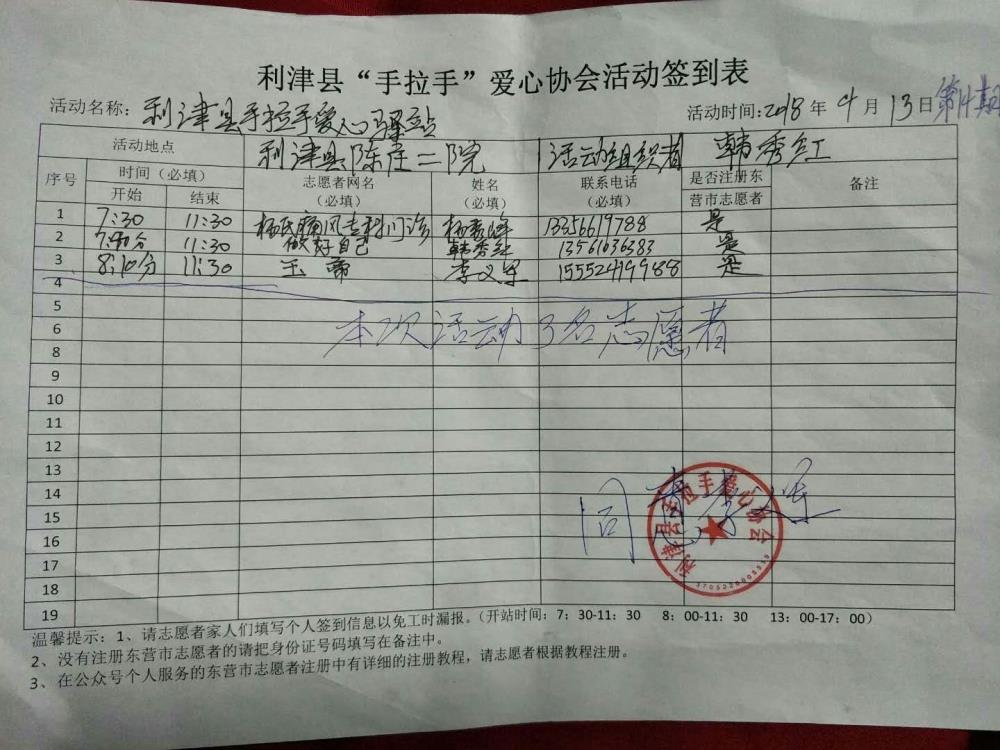 利津县“手拉手”爱心协会活动签到表
活动名称：利津县手拉手爱心驿站 活动时间：2018年4月13日 第14期
活动地点 利津县陈庄二院 活动组织者 韩秀红
序号 时间（必填） 志愿者网名（必填） 姓名（必填） 联系电话（必填） 是否注册东营市志愿者 备注
开始 结束
1 7:30 11:30 杨氏痛风专科门诊 13356619788 是
2 7:40分 11:30 做好自己 韩秀红 13561636383 是
3 8:10分 11:30 李义军 15552419988 是
4
5
6 本次活动3名志愿者
8
9
10
11
12
13
14
15 同意 李义军
16
17
18
19
利津县手拉手爱心协会
温馨提示：1、请志愿者家人们填写个人签到信息以免工时漏报。（开站时间：7：30-11：30 8：00-11：30 13：00-17：00）
2、没有注册东营市志愿者的请把身份证号码填写在备注中。
3、在公众号个人服务的东营市志愿者注册中有详细的注册教程，请志愿者根据教程注册。